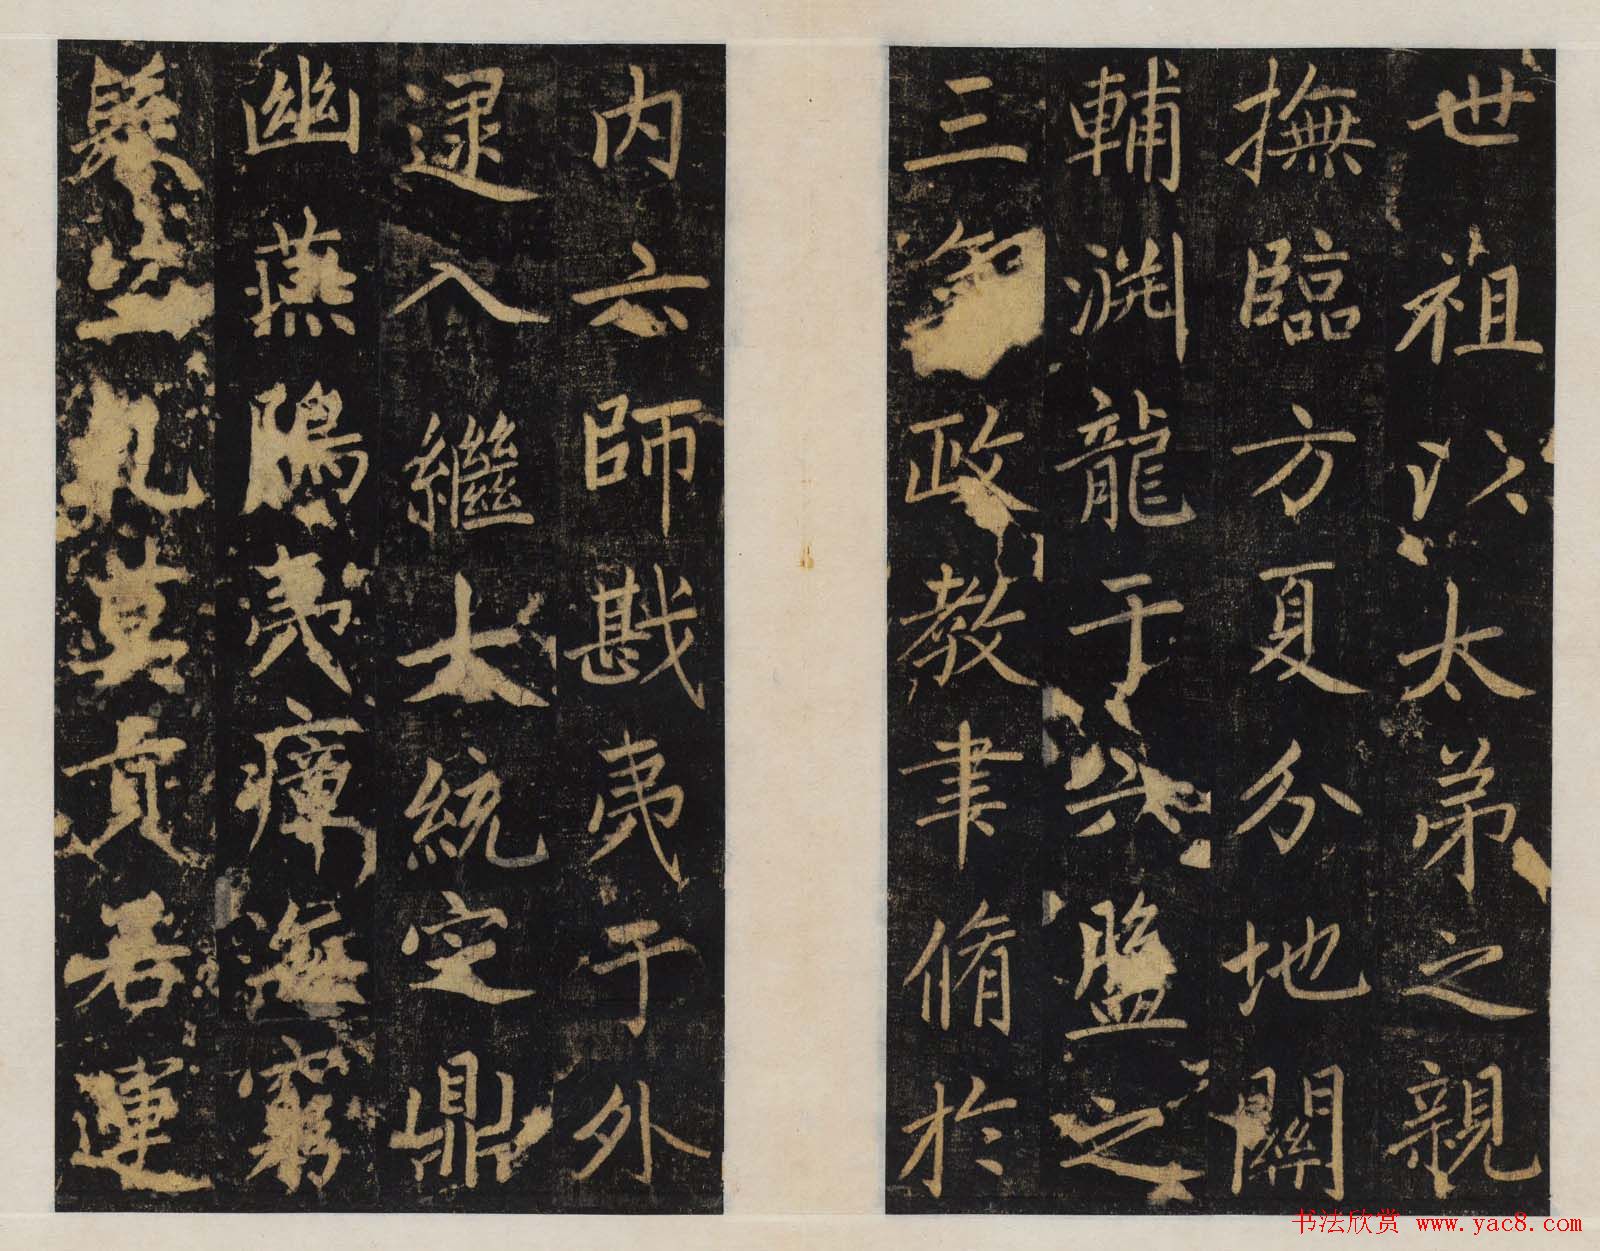 世祖以太弟之親
撫臨方夏分地關
輔渊龍于六盤之
三年政教聿脩於
内六師戡夷于外
逯入繼大統定鼎
幽燕陽夷瘴海窮
髮之凡莫貢若運
书法欣赏 www.yac8.com